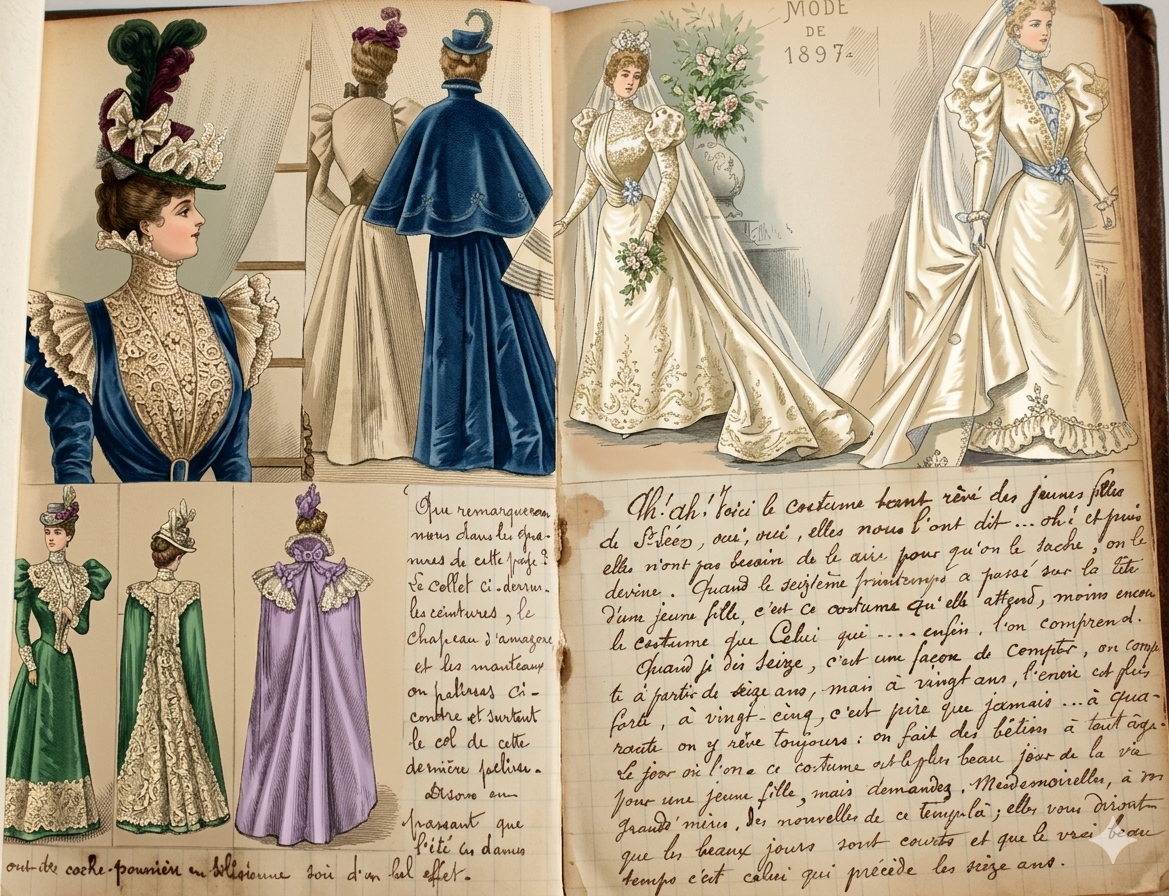 Que remarquerons
nous dans les gra-
vures de cette page ?
Le collet ci-dessus.
les ceintures, le
chapeau d'amazone
et les manteaux
ou pelisses ci-
contre et surtout
le col de cette
dernière pelisse.
Disons en
passant que
l'été les dames
ont des cache-poussière en soie d'un bel effet.
MODE
DE
1897
Ah! ah! Voici le costume tant rêvé des jeunes filles
de St Leez, oui, oui, elles nous l'ont dit ... oh! et puis
elles n'ont pas besoin de le dire pour qu'on le sache, on le
devine. Quand le seizième printemps a passé sur la tête
d'une jeune fille, c'est ce costume qu'elle attend, moins encore
le costume que Celui qui .... enfin, l'on comprend.
Quand je dis seize, c'est une façon de compter, on comp-
te à partir de seize ans, mais à vingt ans, l'envie est plus
forte, à vingt-cinq, c'est pire que jamais ... à qua-
rante on y rêve toujours : on fait des bêtises à tout âge.
Le jour où l'on a ce costume est le plus beau jour de la vie
pour une jeune fille, mais demandez, Mesdemoiselles, à vos
grand'mères, des nouvelles de ce temps là ; elles vous diront
que les beaux jours sont courts et que le vrai beau
temps c'est celui qui précède les seize ans.